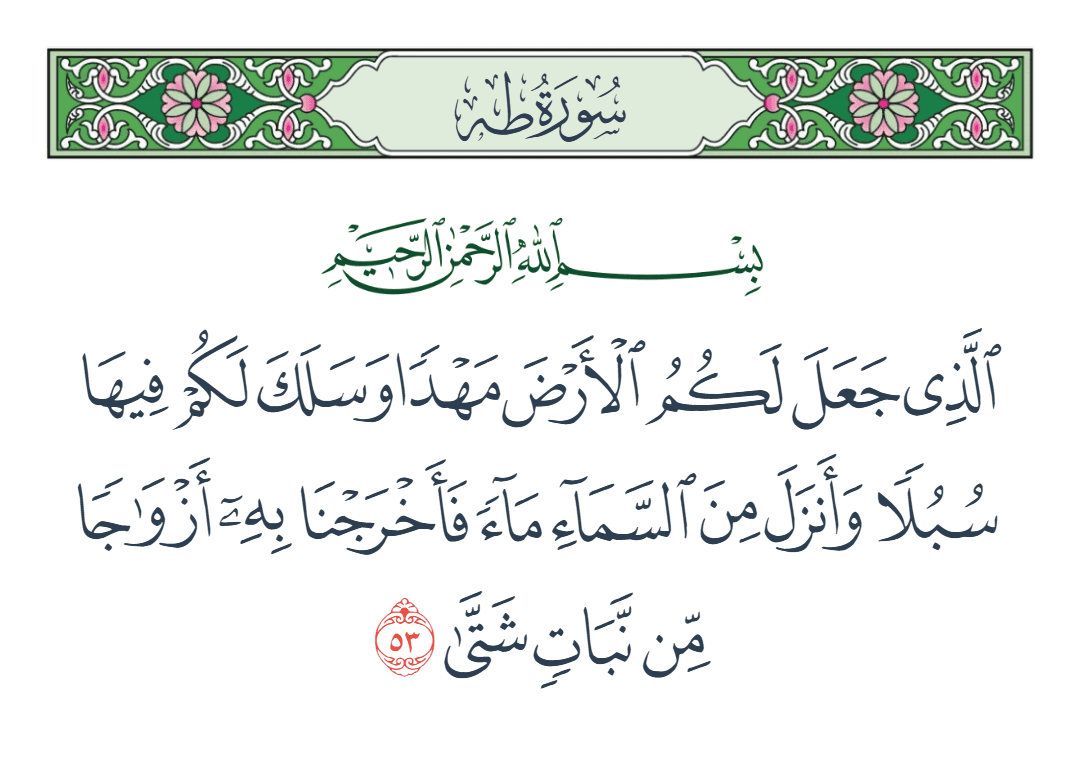 سُورَةُ طه
بِسْمِ ٱللَّهِ ٱلرَّحْمَٰنِ ٱلرَّحِيمِ
ٱلَّذِى جَعَلَ لَكُمُ ٱلْأَرْضَ مَهْدًا وَسَلَكَ لَكُمْ فِيهَا
سُبُلًا وَأَنزَلَ مِنَ ٱلسَّمَآءِ مَآءً فَأَخْرَجْنَا بِهِۦٓ أَزْوَٰجًا
مِّن نَّبَاتٍ شَتَّىٰ ٥٣